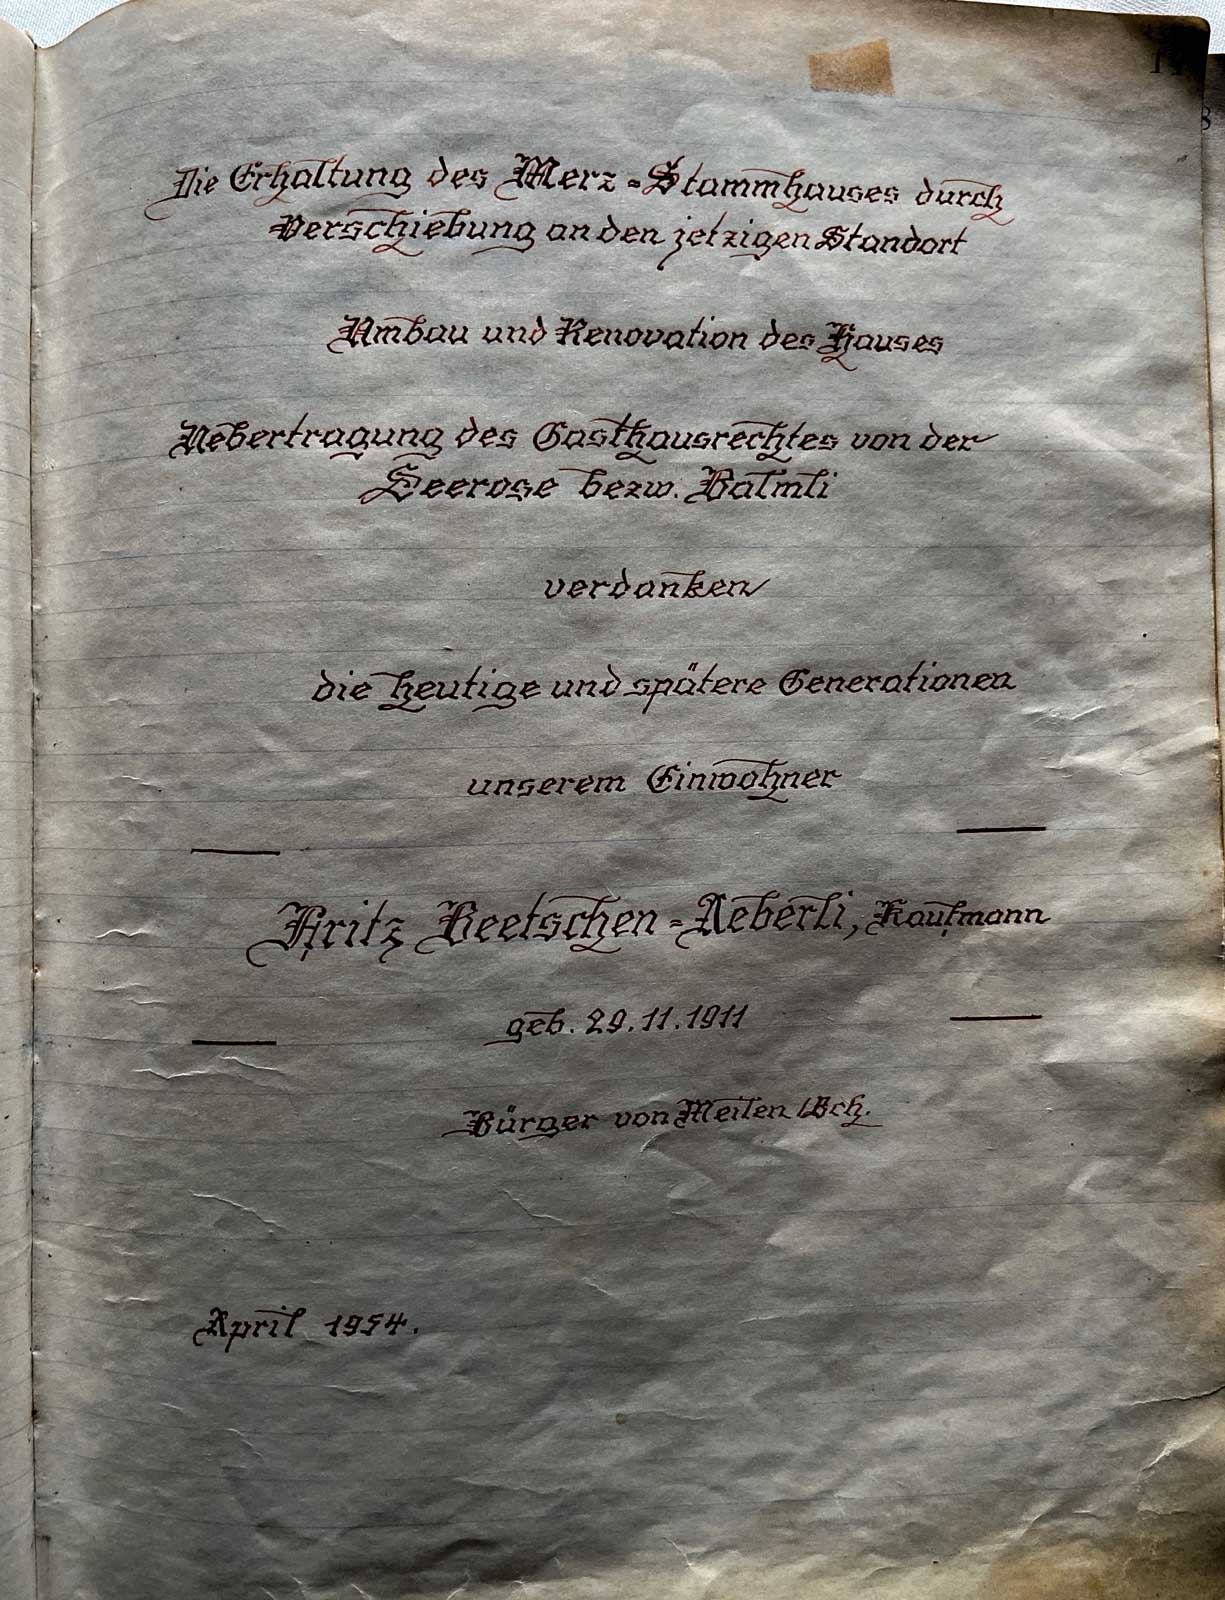 Die Erhaltung des Merz-Stammhauses durch
Verschiebung an den jetzigen Standort
Umbau und Renovation des Hauses
Uebertragung des Gasthausrechtes von der
Seerose bezw. Balmli
verdanken
die heutige und spätere Generationen
unserem Einwohner
Fritz Beetschen-Aeberli, Kaufmann
geb. 29.11.1911
Bürger von Meilen/Zch.
April 1954.